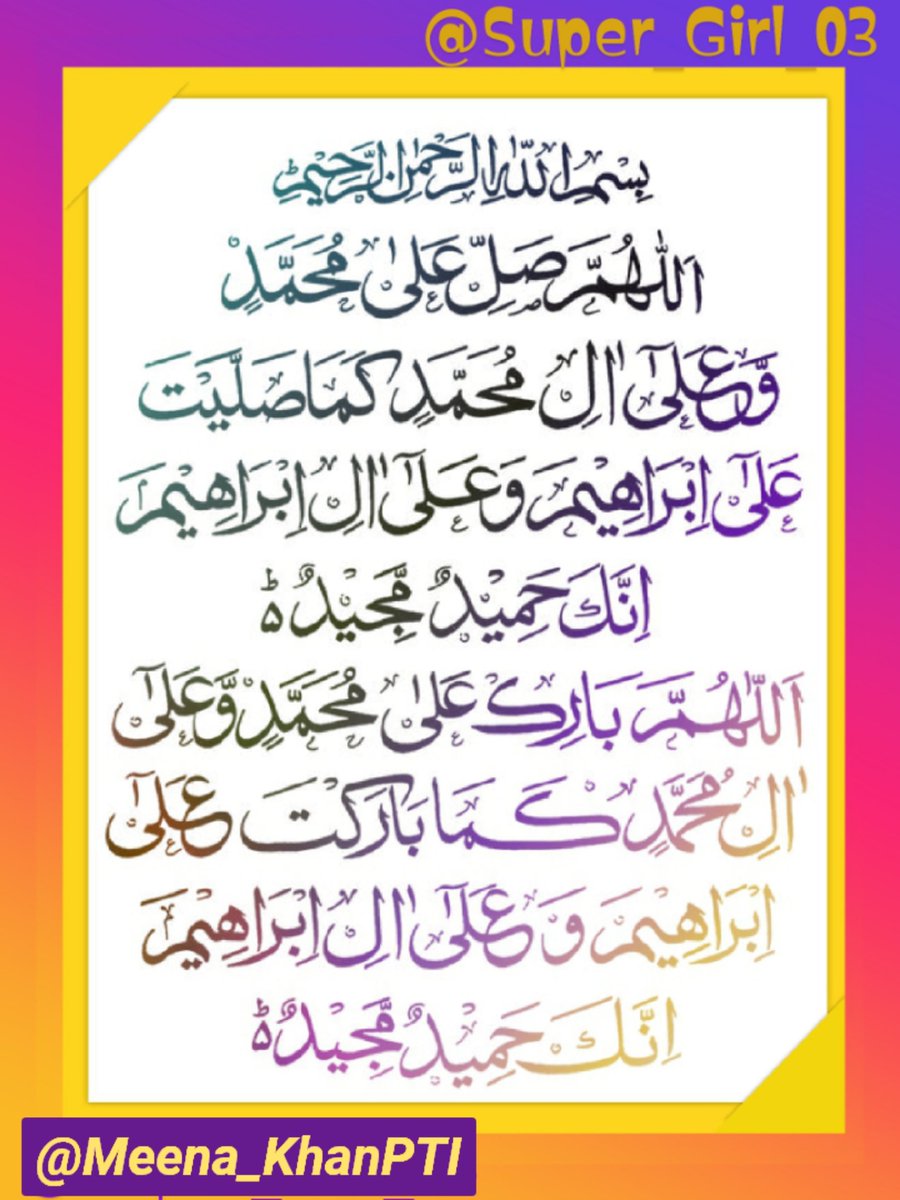 @Super_Girl_03
بِسْمِ اللّٰهِ الرَّحْمٰنِ الرَّحِيْمِ ؕ
اَللّٰهُمَّ صَلِّ عَلٰى مُحَمَّدٍ
وَّعَلٰٓى اٰلِ مُحَمَّدٍ كَمَا صَلَّيْتَ
عَلٰٓى اِبْرَاهِيْمَ وَعَلٰٓى اٰلِ اِبْرَاهِيْمَ
اِنَّكَ حَمِيْدٌ مَّجِيْدٌ ۵ؕ
اَللّٰهُمَّ بَارِكْ عَلٰى مُحَمَّدٍ وَّعَلٰٓى
اٰلِ مُحَمَّدٍ كَمَا بَارَكْتَ عَلٰٓى
اِبْرَاهِيْمَ وَعَلٰٓى اٰلِ اِبْرَاهِيْمَ
اِنَّكَ حَمِيْدٌ مَّجِيْدٌ ۵ؕ
@Meena_KhanPTI